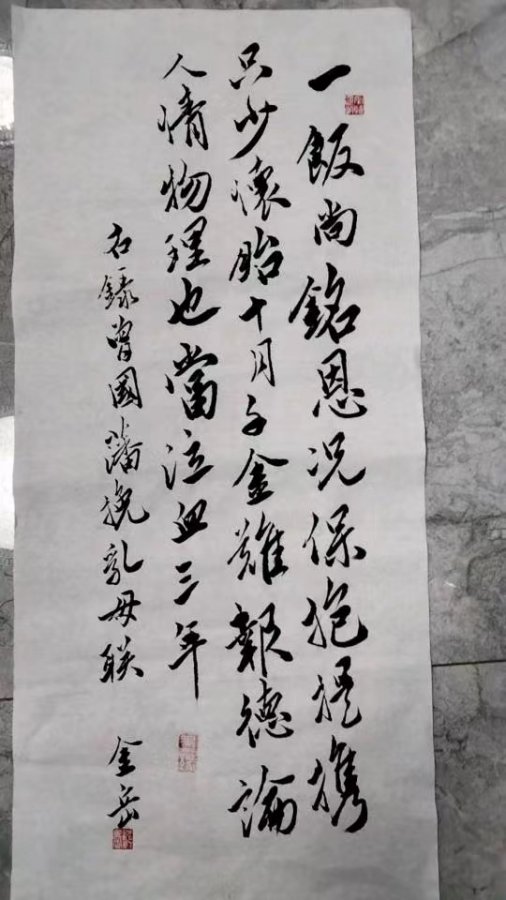 一飯尚銘恩况保抱提攜
只少懷胎十月千金難報德論
人情物理也當泣血三年
右錄曾國藩挽乳母联
金岳